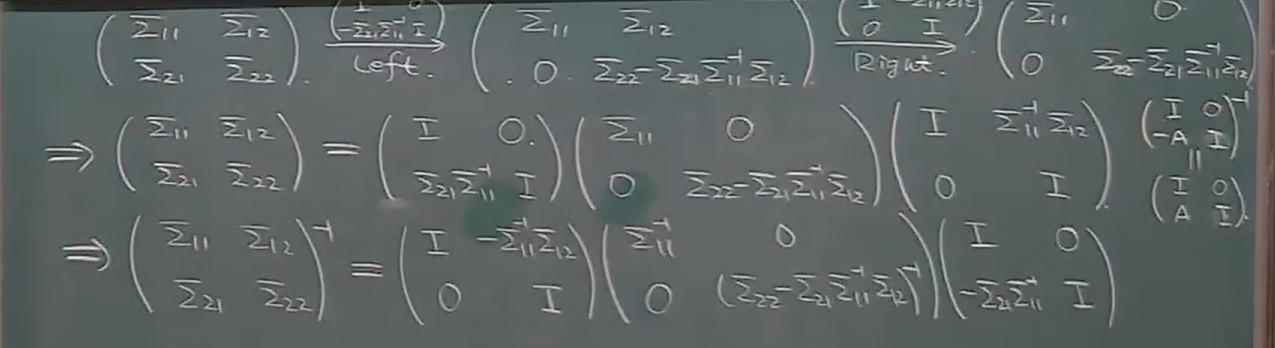 $\begin{pmatrix} \Sigma_{11} & \Sigma_{12} \\ \Sigma_{21} & \Sigma_{22} \end{pmatrix} \xrightarrow[\text{Left.}]{\begin{pmatrix} I & 0 \\ -\Sigma_{21}\Sigma_{11}^{-1} & I \end{pmatrix}} \begin{pmatrix} \Sigma_{11} & \Sigma_{12} \\ 0 & \Sigma_{22}-\Sigma_{21}\Sigma_{11}^{-1}\Sigma_{12} \end{pmatrix} \xrightarrow[\text{Right.}]{\begin{pmatrix} I & -\Sigma_{11}^{-1}\Sigma_{12} \\ 0 & I \end{pmatrix}} \begin{pmatrix} \Sigma_{11} & 0 \\ 0 & \Sigma_{22}-\Sigma_{21}\Sigma_{11}^{-1}\Sigma_{12} \end{pmatrix}$
$\Rightarrow \begin{pmatrix} \Sigma_{11} & \Sigma_{12} \\ \Sigma_{21} & \Sigma_{22} \end{pmatrix} = \begin{pmatrix} I & 0 \\ \Sigma_{21}\Sigma_{11}^{-1} & I \end{pmatrix} \begin{pmatrix} \Sigma_{11} & 0 \\ 0 & \Sigma_{22}-\Sigma_{21}\Sigma_{11}^{-1}\Sigma_{12} \end{pmatrix} \begin{pmatrix} I & \Sigma_{11}^{-1}\Sigma_{12} \\ 0 & I \end{pmatrix}$
$\begin{pmatrix} I & 0 \\ -A & I \end{pmatrix}^{-1}$
$||$
$\begin{pmatrix} I & 0 \\ A & I \end{pmatrix}.$
$\Rightarrow \begin{pmatrix} \Sigma_{11} & \Sigma_{12} \\ \Sigma_{21} & \Sigma_{22} \end{pmatrix}^{-1} = \begin{pmatrix} I & -\Sigma_{11}^{-1}\Sigma_{12} \\ 0 & I \end{pmatrix} \begin{pmatrix} \Sigma_{11}^{-1} & 0 \\ 0 & (\Sigma_{22}-\Sigma_{21}\Sigma_{11}^{-1}\Sigma_{12})^{-1} \end{pmatrix} \begin{pmatrix} I & 0 \\ -\Sigma_{21}\Sigma_{11}^{-1} & I \end{pmatrix}$